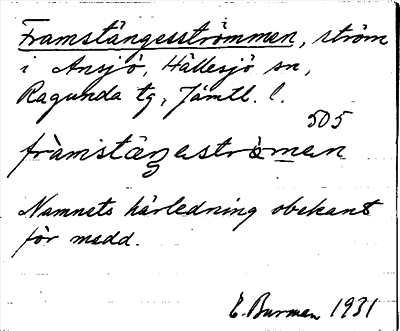 Framstängesströmmen, ström
i Ansjö, Hällesjö sn,
Ragunda tg, Jämtl. l.
505
fràmstäŋeströ̀men
Namnets härledning obekant
för medd.
E. Burman 1931